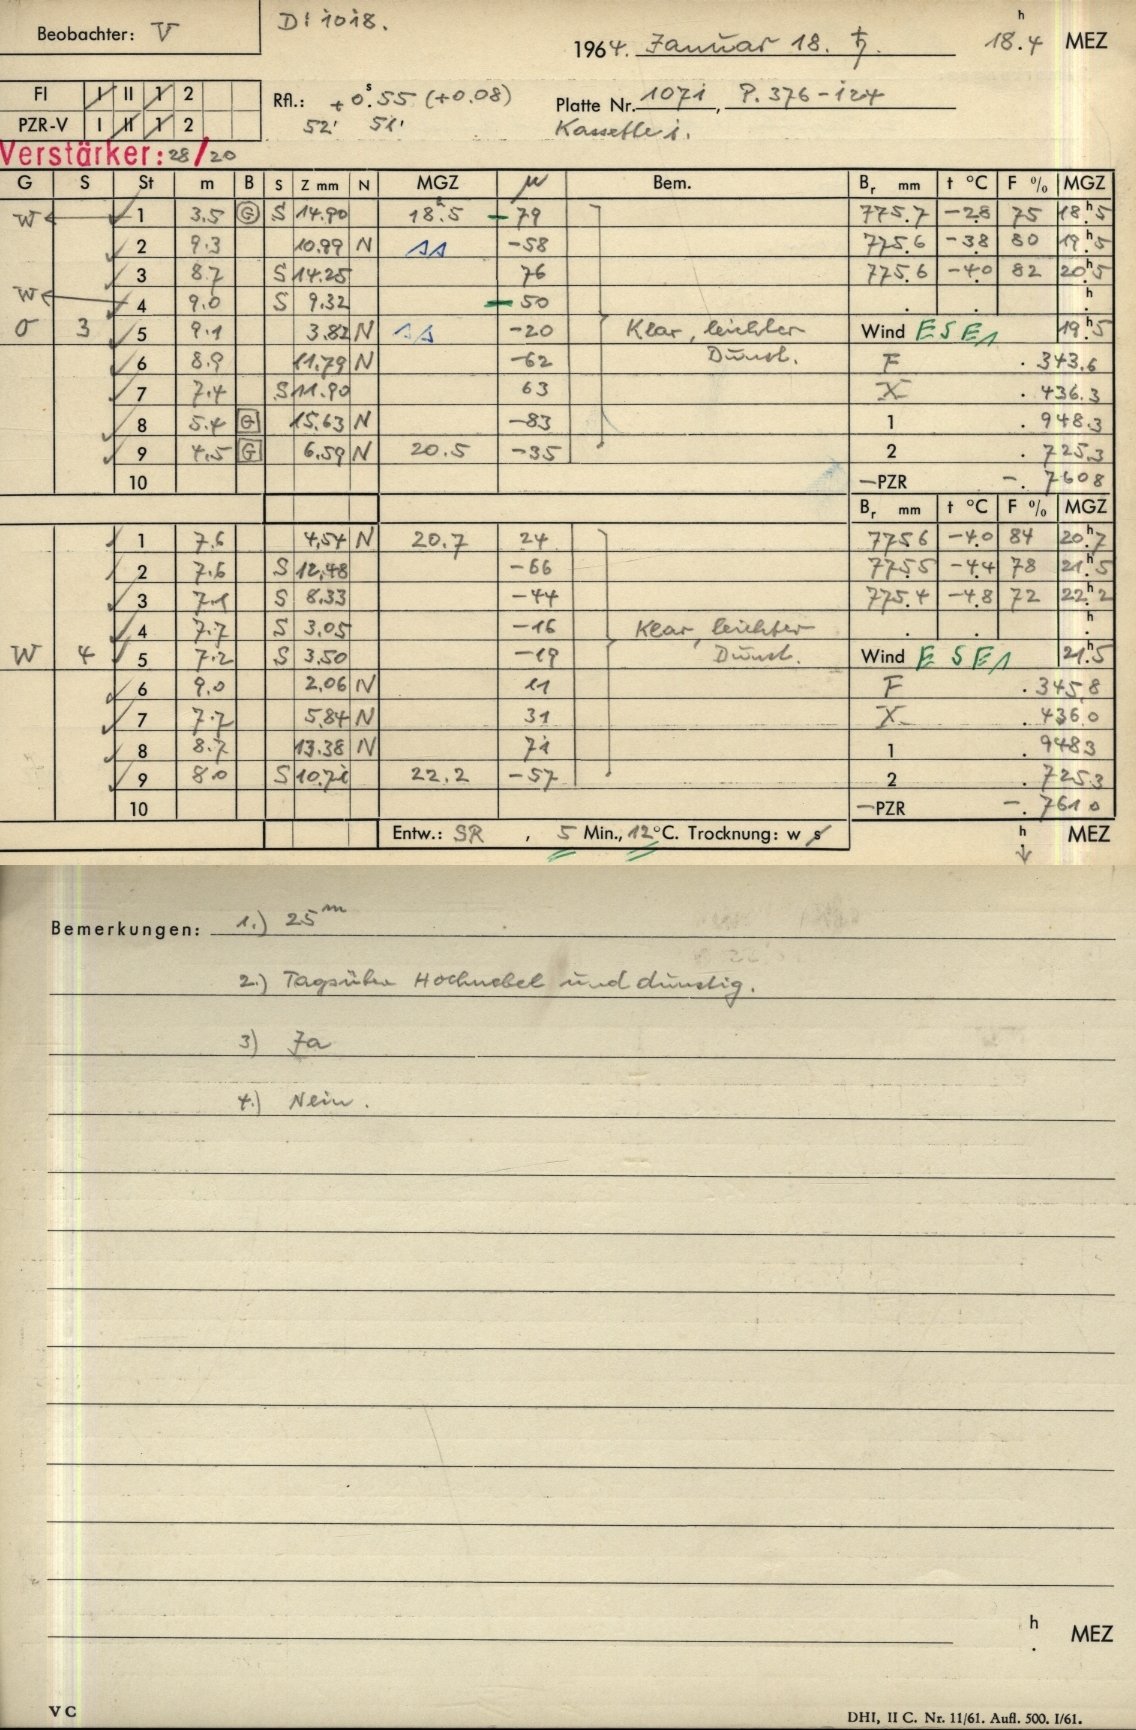 Beobachter: V
D: 1018.
1964. Januar 18. ♄. 18h.4 MEZ
FI I II 1 2
PZR-V I II 1 2
Rfl.: +0s.55 (+0.08)
52' 51'
Platte Nr. 1071, P. 376-124
Kassette 1.
Verstärker: 28/20
G S St m B S Z mm N MGZ μ Bem. Br mm t °C F % MGZ
W 1 3.5 G S 14.90 18h.5 -79 775.7 -2.8 75 18h.5
2 9.3 10.99 N -58 775.6 -3.8 80 19h.5
3 8.7 S 14.25 76 775.6 -4.0 82 20h.5
W 4 9.0 S 9.32 -50 . . h.
σ 3 5 9.1 3.82 N -20 Klar, leichter Wind ESE1 19h.5
6 8.9 11.79 N -62 Dunst. F .343.6
7 7.4 S 11.90 63 X .436.3
8 5.4 G 15.63 N -83 1 .948.3
9 4.5 G 6.59 N 20.5 -35 2 .725.3
10 -PZR -.7608
Br mm t °C F % MGZ
1 7.6 4.54 N 20.7 24 775.6 -4.0 84 20h.7
2 7.6 S 12.48 -66 775.5 -4.4 78 21h.5
3 7.1 S 8.33 -44 775.4 -4.8 72 22h.2
4 7.7 S 3.05 -16 Klar, leichter . . h.
W 4 5 7.2 S 3.50 -19 Dunst. Wind ESE1 21h.5
6 9.0 2.06 N 11 F .345.8
7 7.7 5.84 N 31 X .436.0
8 8.7 13.38 N 71 1 .9483
9 8.0 S 10.71 22.2 -57 2 .725.3
10 -PZR -.7610
Entw.: SR , 5 Min., 12°C. Trocknung: w s h MEZ
Bemerkungen: 1.) 25m
2.) Tagsüber Hochnebel und dunstig.
3) Ja
4.) Nein.
h. MEZ
V C
DHI, II C. Nr. 11/61. Aufl. 500. I/61.